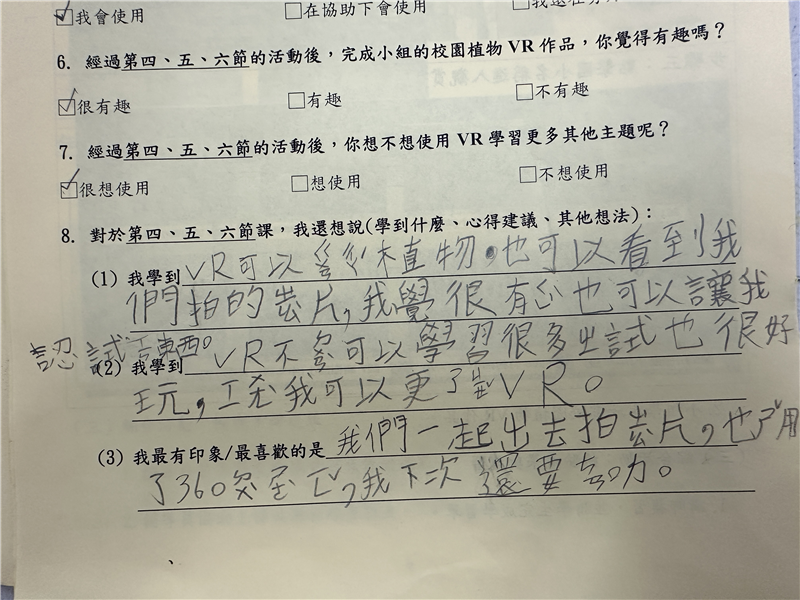 ☑我會使用 □在協助下會使用
6. 經過第四、五、六節的活動後，完成小組的校園植物 VR 作品，你覺得有趣嗎？
☑很有趣 □有趣 □不有趣
7. 經過第四、五、六節的活動後，你想不想使用 VR 學習更多其他主題呢？
☑很想使用 □想使用 □不想使用
8. 對於第四、五、六節課，我還想說(學到什麼、心得建議、其他想法)：
(1) 我學到VR可以植物，也可以看到我
們拍的片，我覺很有也可以讓我
認東西。
(2) 我學到VR不可以學習很多也很好
玩，我可以更了VR。
(3) 我最有印象/最喜歡的是我們一起出去拍片，也用
了360，我下次還要力。